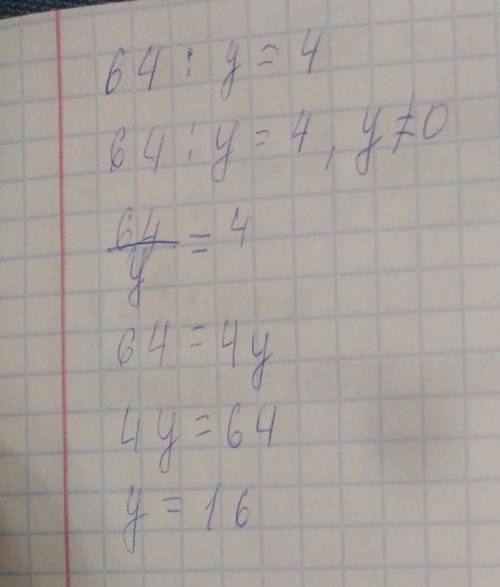 64 : y = 4
64 : y = 4, y ≠ 0
64/y = 4
64 = 4y
4y = 64
y = 16